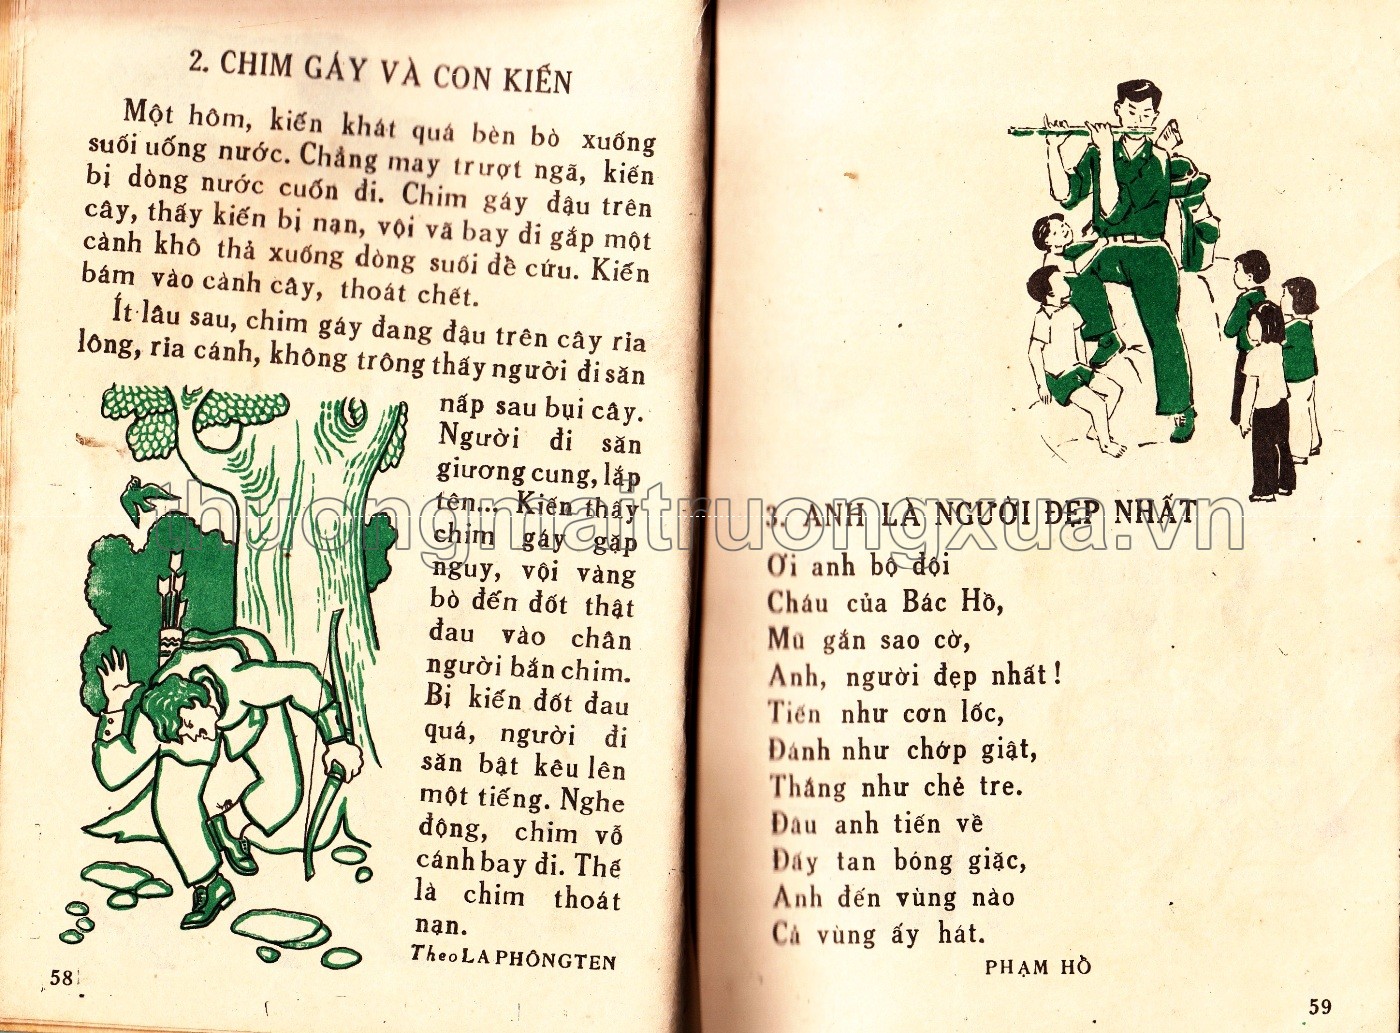 2. CHIM GÁY VÀ CON KIẾN
Một hôm, kiến khát quá bèn bò xuống
suối uống nước. Chẳng may trượt ngã, kiến
bị dòng nước cuốn đi. Chim gáy đậu trên
cây, thấy kiến bị nạn, vội vã bay đi gắp một
cành khô thả xuống dòng suối để cứu. Kiến
bám vào cành cây, thoát chết.
Ít lâu sau, chim gáy đang đậu trên cây rỉa
lông, rỉa cánh, không trông thấy người đi săn
nấp sau bụi cây.
Người đi săn
giương cung, lắp
tên... Kiến thấy
chim gáy gặp
nguy, vội vàng
bò đến đốt thật
đau vào chân
người bắn chim.
Bị kiến đốt đau
quá, người đi
săn bật kêu lên
một tiếng. Nghe
động, chim vỗ
cánh bay đi. Thế
là chim thoát
nạn.
Theo LA PHÔNGTEN
58
3. ANH LÀ NGƯỜI ĐẸP NHẤT
Ơi anh bộ đội
Cháu của Bác Hồ,
Mũ gắn sao cờ,
Anh, người đẹp nhất !
Tiến như cơn lốc,
Đánh như chớp giật,
Thắng như chẻ tre.
Đâu anh tiến về
Đấy tan bóng giặc,
Anh đến vùng nào
Cả vùng ấy hát.
PHẠM HỒ
59
thuongmaitruongxua.vn